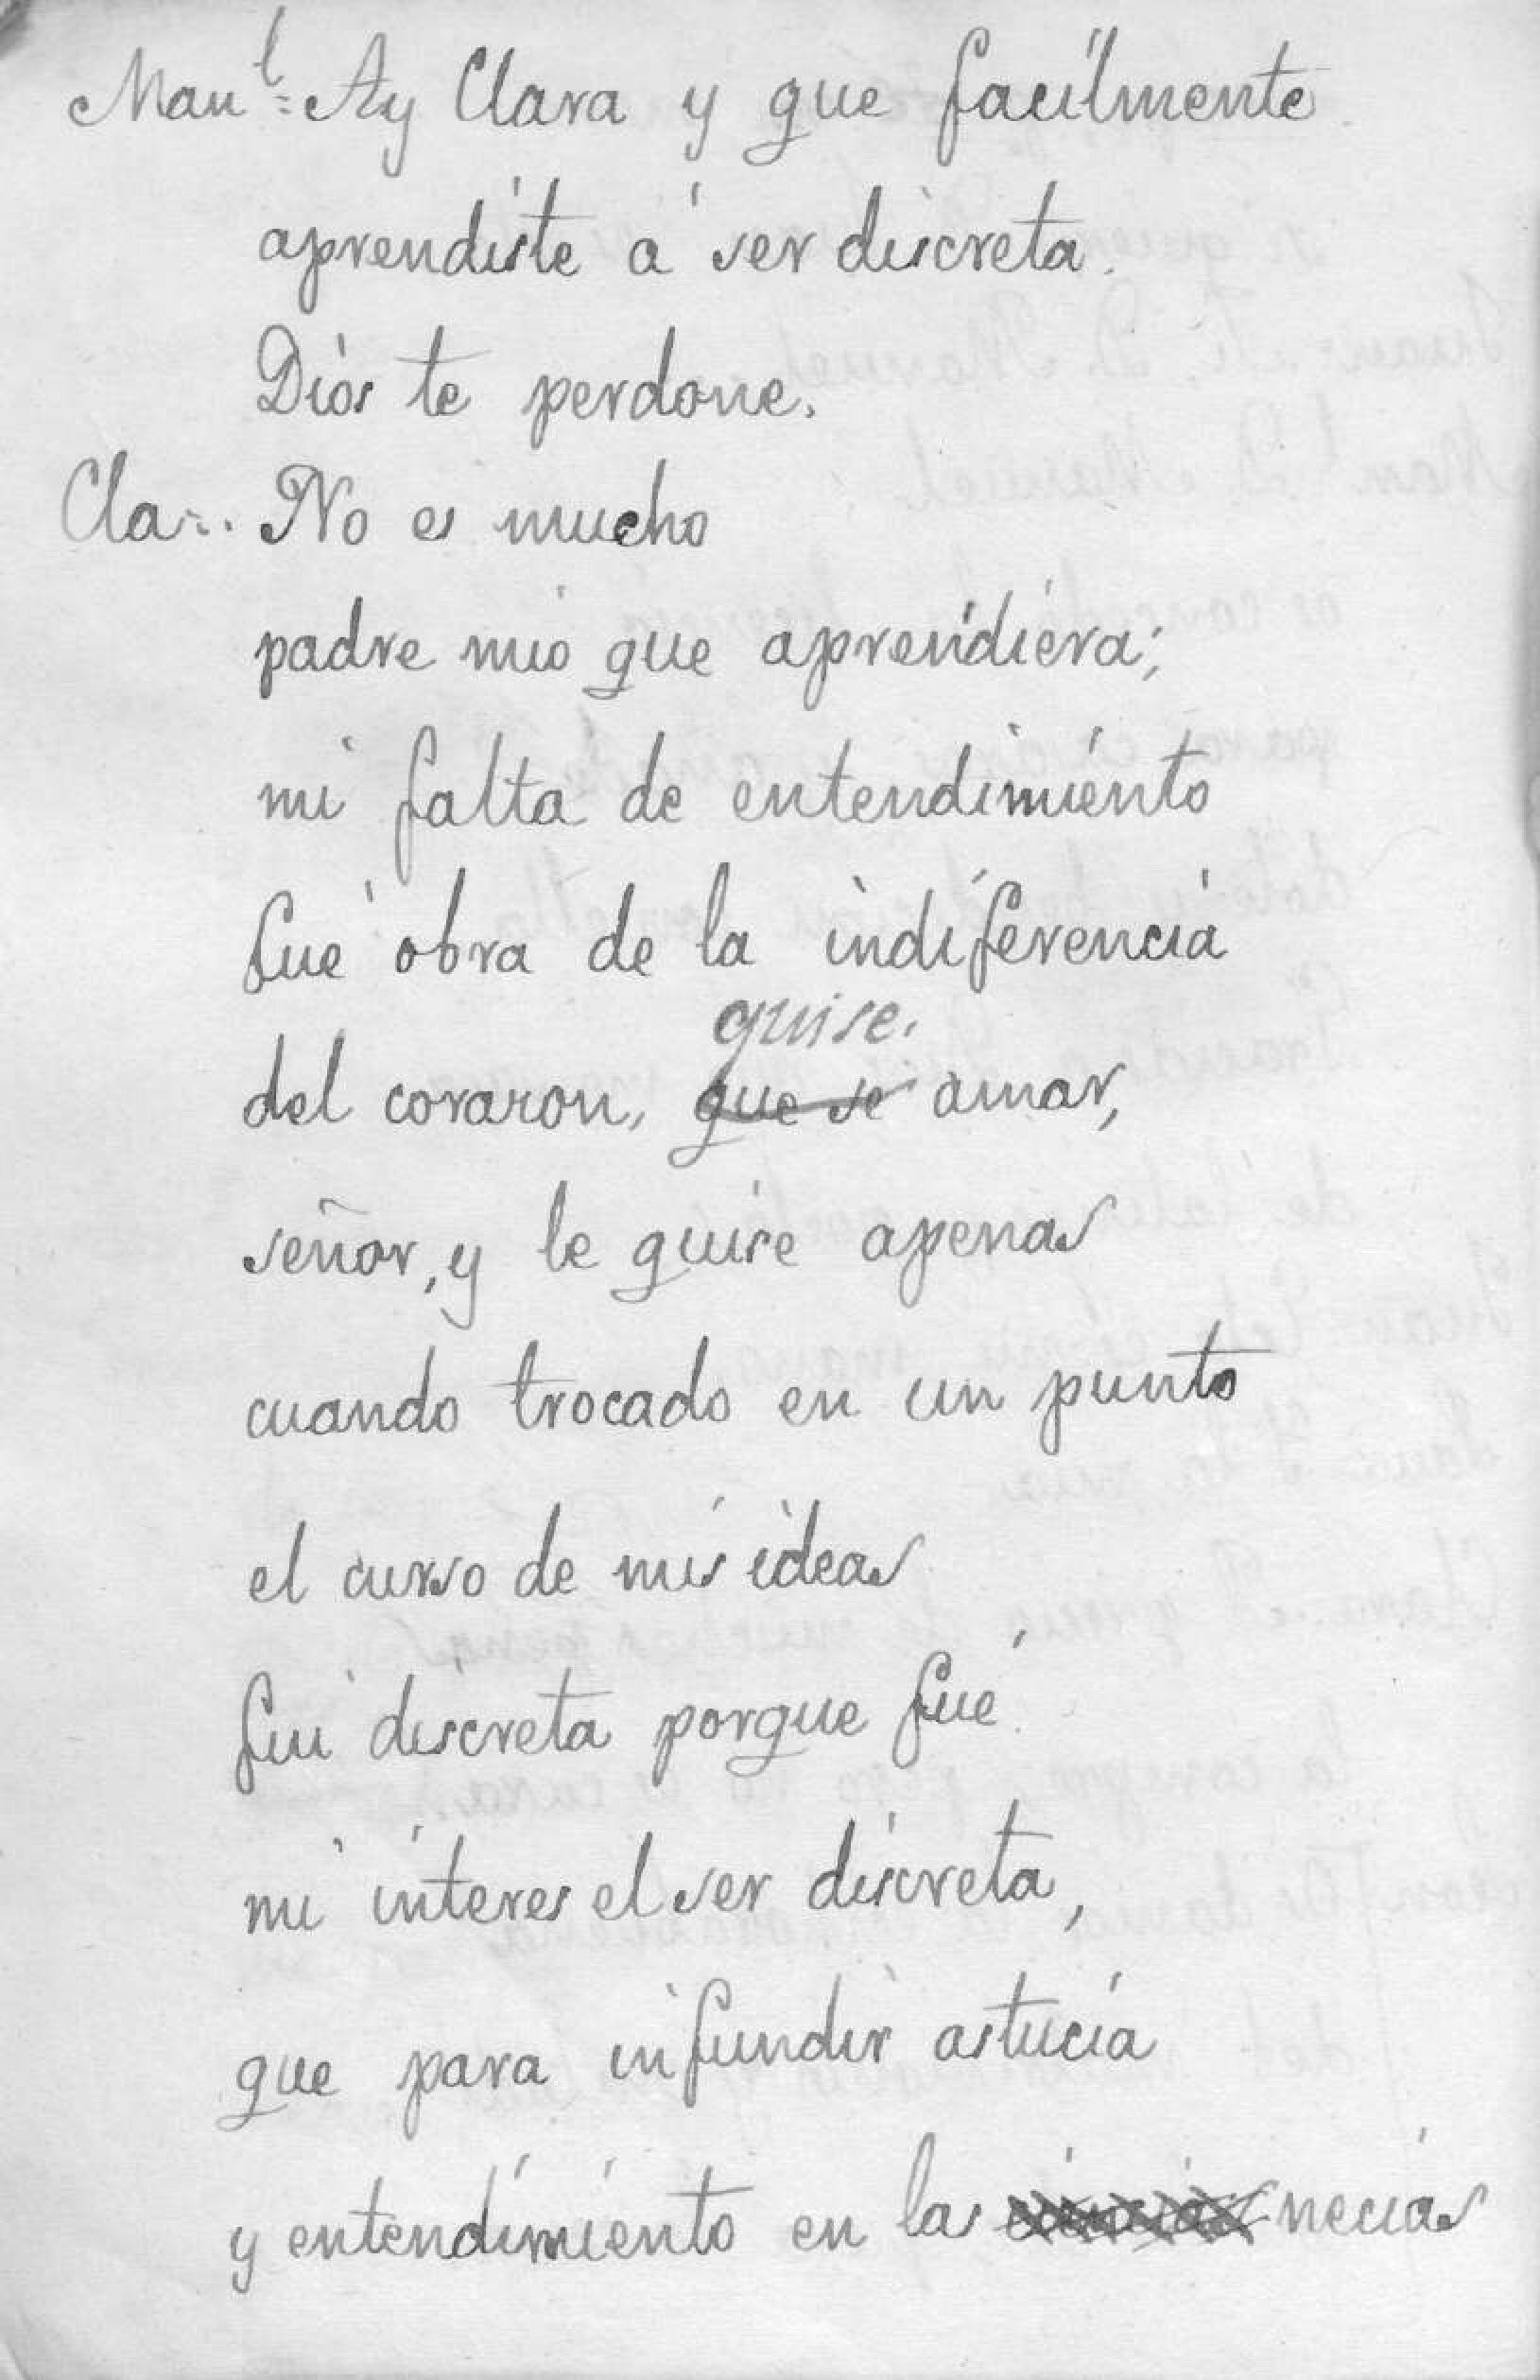 Manˡ= Ay Clara y que facilmente
aprendiste á ser discreta.
Dios te perdone.
Cla=. No es mucho
padre mio que aprendiera;
mi falta de entendimiento
fué obra de la indiferencia
quise.
del corazon, que se amar,
señor, y le quise apenas
cuando trocado en un punto
el curso de mis ideas
fui discreta porque fué
mi interes el ser discreta,
que para infundir astucia
y entendimiento en las necias